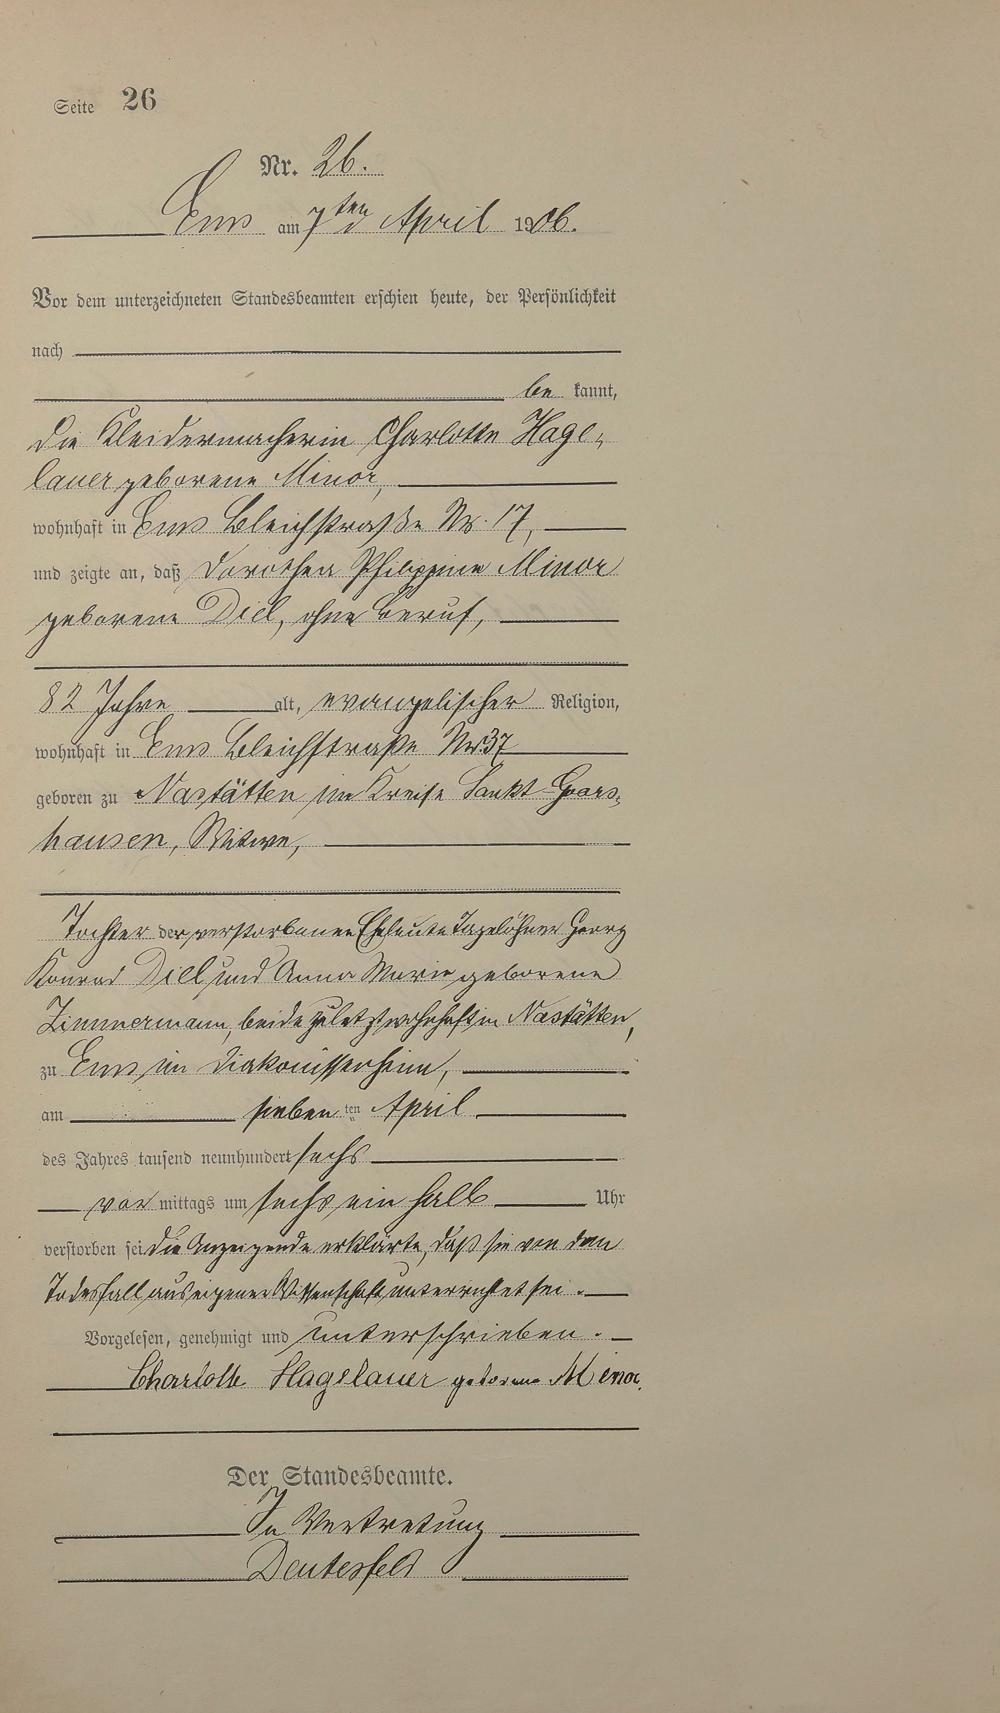 Seite 26
Nr. 26.
Ems am 7ten April 1906.
Vor dem unterzeichneten Standesbeamten erschien heute, der Persönlichkeit
nach
be kannt,
die Kleidermacherin Charlotte Hage-
lauer geborene Minor,
wohnhaft in Ems Bleichstraße Nr. 17,
und zeigte an, daß Dorothea Philippine Minor
geborene Diel, ohne Beruf,
82 Jahre alt, evangelischer Religion,
wohnhaft in Ems Bleichstraße Nr. 37
geboren zu Nastätten im Kreise Sankt Goars-
hausen, Witwe,
Tochter der verstorbenen Eheleute Tagelöhner Georg
Konrad Diel und Anna Marie geborene
Zimmermann, beide zuletzt wohnhaft in Nastätten,
zu Ems im Diakonissenheim,
am sieben ten April
des Jahres tausend neunhundert sechs
vor mittags um sechs ein halb Uhr
verstorben sei. Die Anzeigende erklärte, daß sie von dem
Todesfall aus eigener Wissenschaft unterrichtet sei.
Vorgelesen, genehmigt und unterschrieben.
Charlotte Hagelauer geborene Minor.
Der Standesbeamte.
In Vertretung